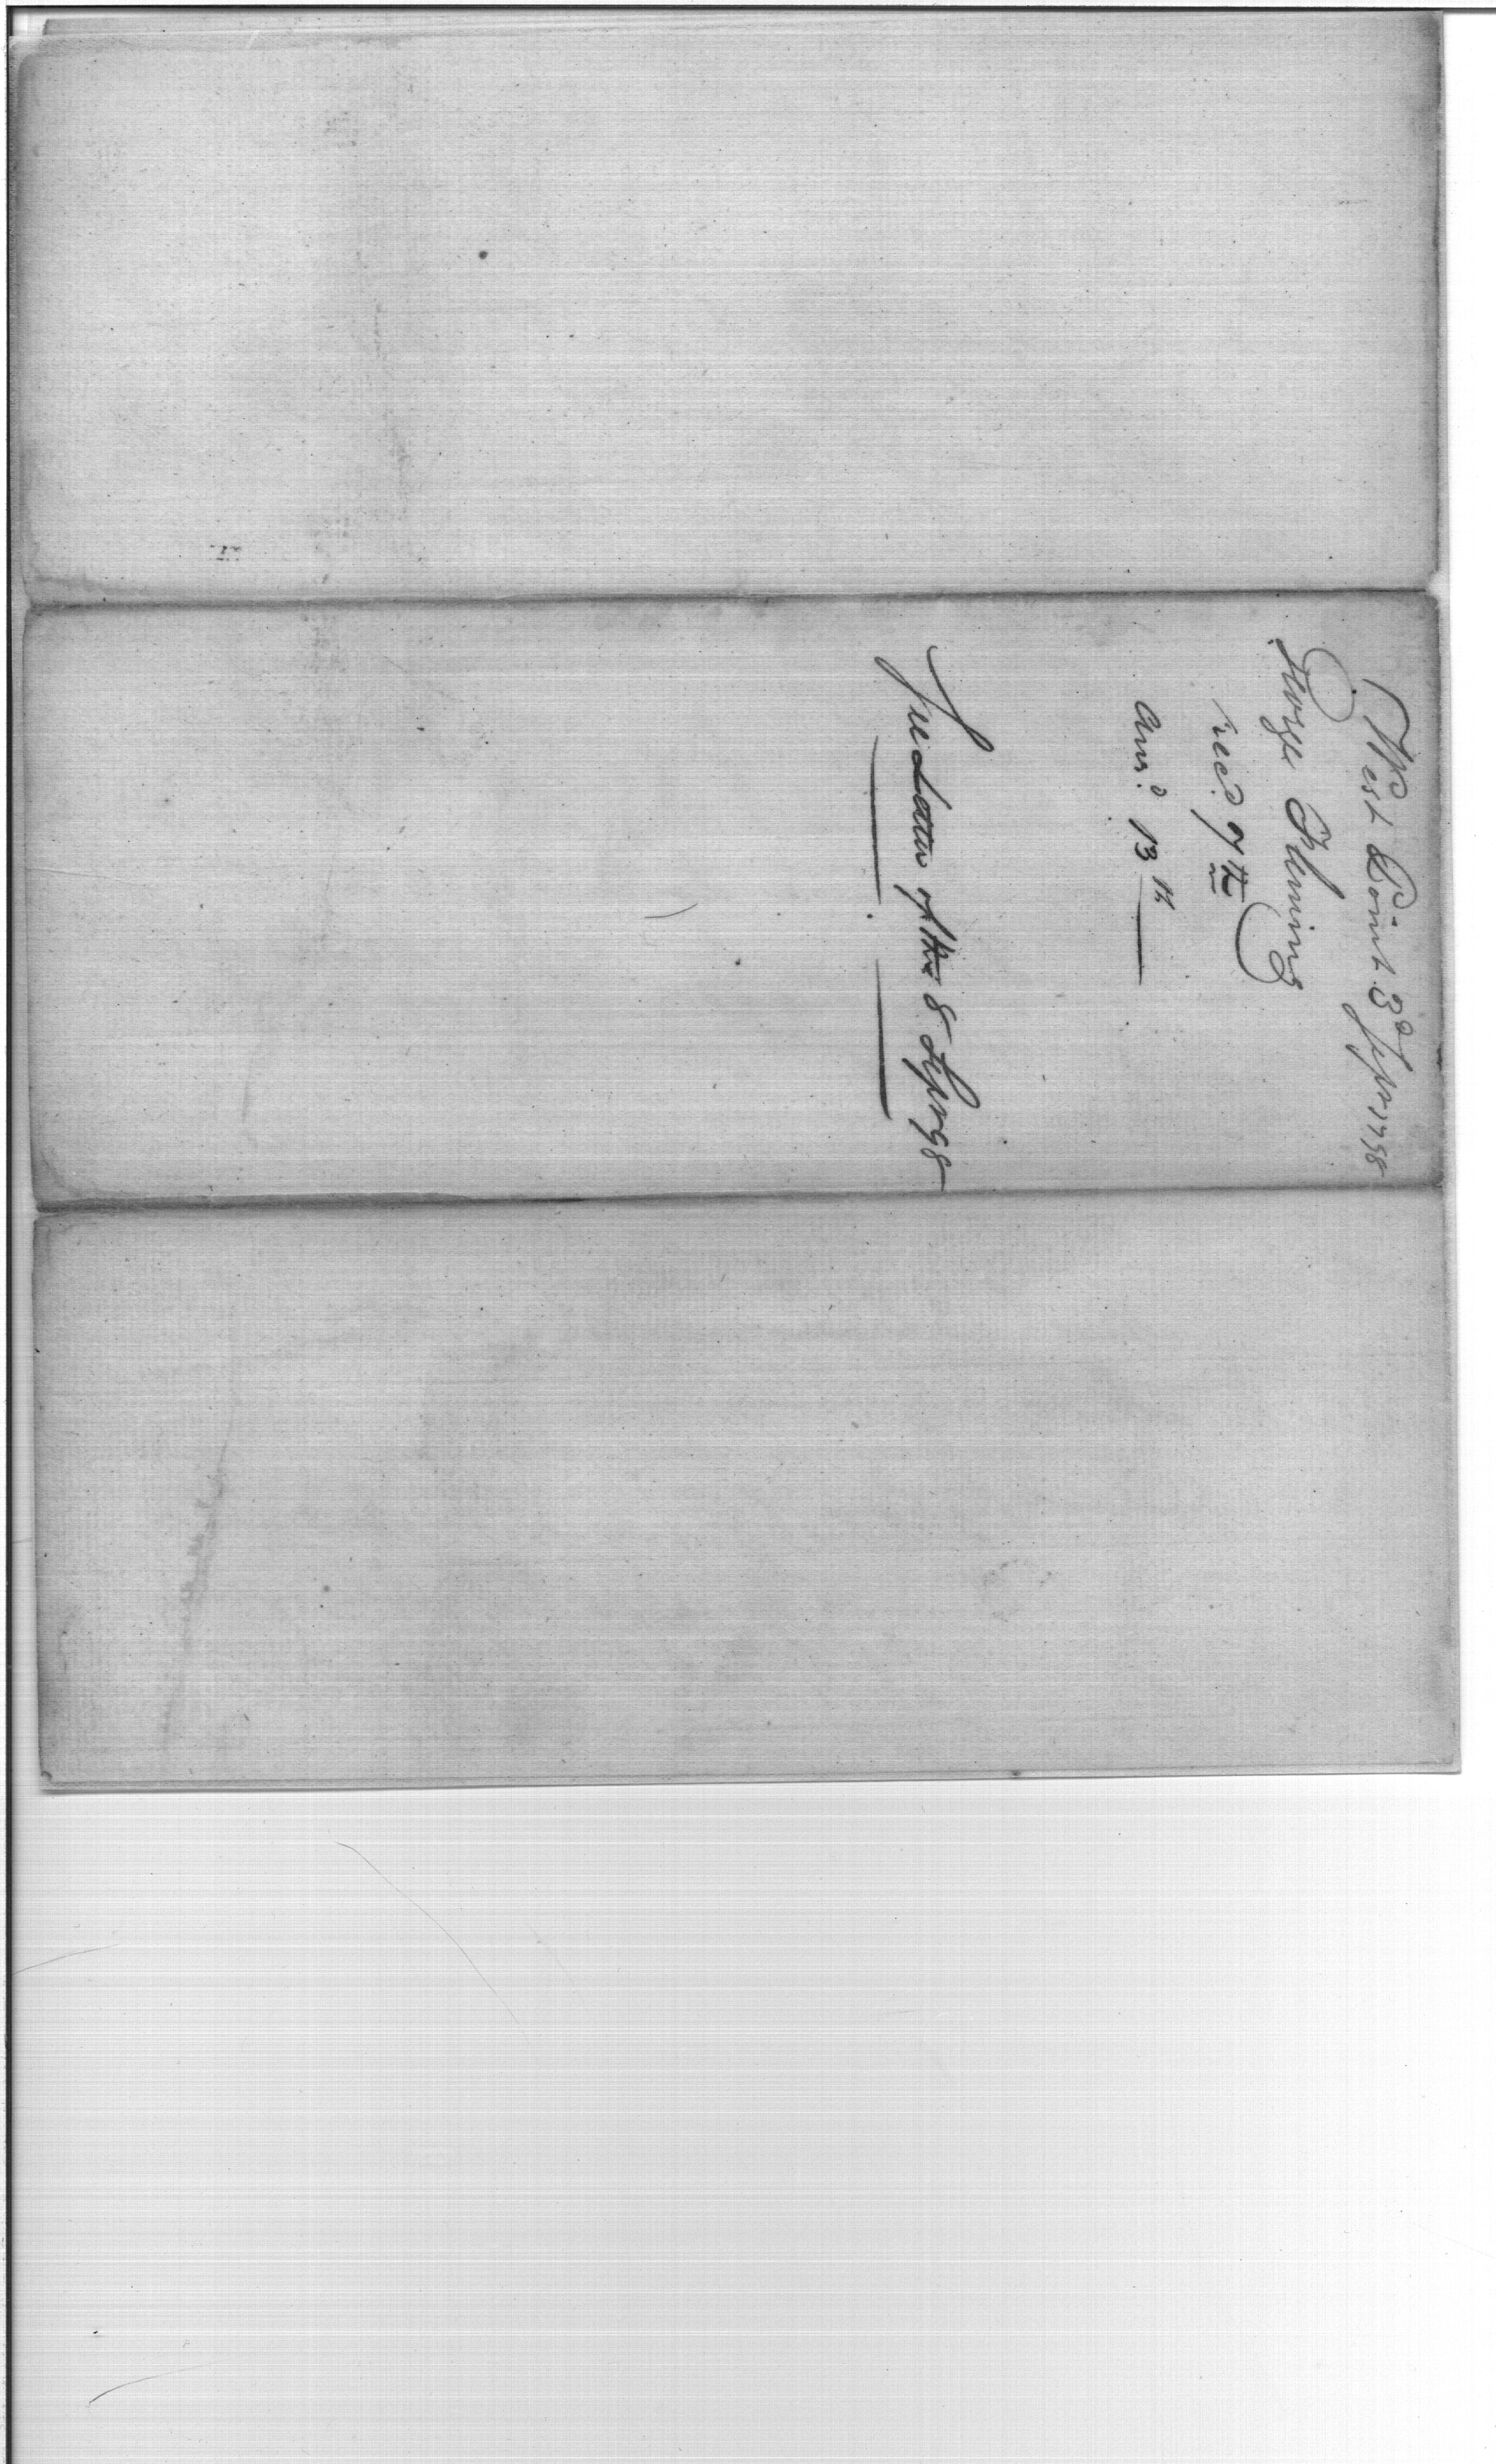 West Point 3d Sepr 1798
George Fleming
recd 7th
Ansd 13th
See Letter of the 8 Sepr 98